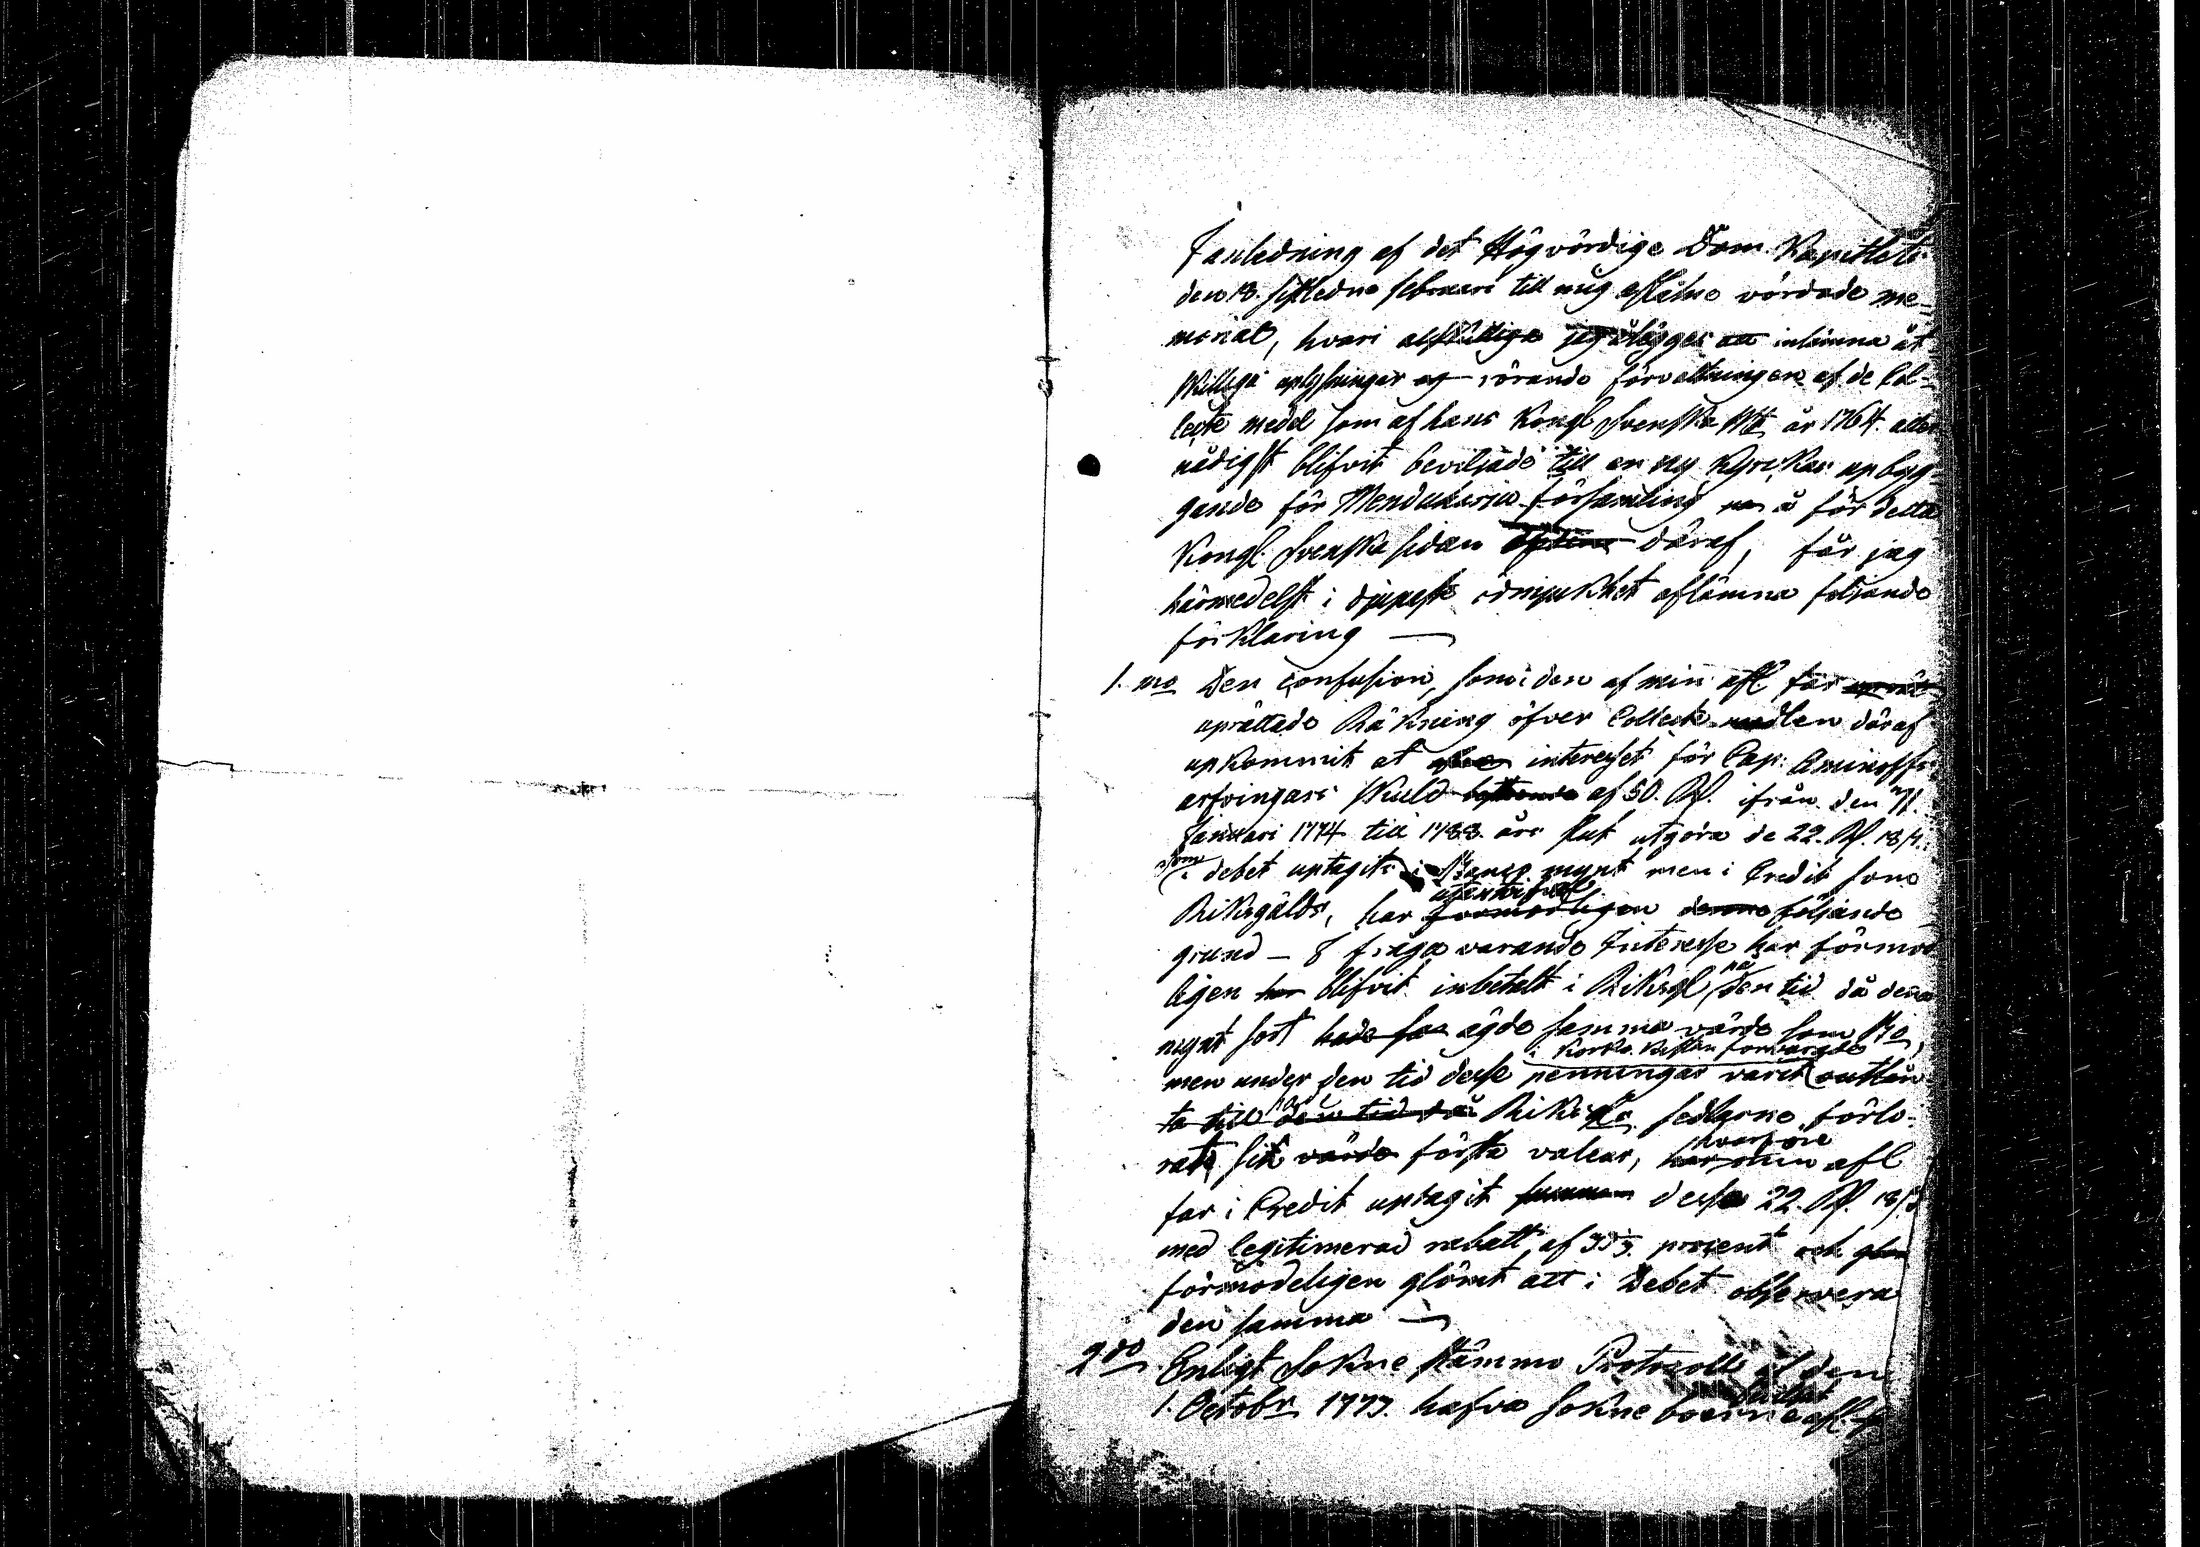 I anledning af det Högvördige Dom Kapitlets
den 18. sistledne februari till mig aflåtne vördade me-
morial, hvari jag ålägges att inlämna åt
skilliga uplysningar rörande förvaltningen af de Col-
lecte medel som af hans Kongl Svenska Mtt år 1764. aller
nådigst blifvit beviljade till en ny Kyrckas upbyg-
gande för Menduharju församling på för detta
Kongl. Svenska sidan däraf, får jag
härmedelst i djupaste ödmjukhet aflämna följande
förklaring —
1. mo Den confusion, som i den af min afl far
uprättade Räkning öfver Collect medlen däraf
upkommit at interesset för Cap: Aminoffs
arfvingars skuld af 50. Rd. ifrån den 1.
Januari 1774 till 1788 års slut utgöra de 22. Rd. 18/.
som i debet uptagits i mynt men i Credit som
Riksgälds, har förmodligen denne följande
grund — I fråga varande Interesse har förmod
ligen har blifvit inbetalt i Riksgl på den tid då denna
mynt sort hade ägde samma värde som Bo,
i Kyrko Kistan förvarade
men under den tid desse penningar varit utlån
ta till den tid då Riksgls sedlarne förlo-
rat sit värde första valeur, hvarföre har min afl
far i Credit uptagit summan desse 22. Rd. 18/
med legitimerad rabatt af 33⅓ procent och glöm
förmodeligen glömt att i Debet observera
den samma —
2do Enligt Sokne stämmo Protocoll af den
1. Octobr 1777. hafva Sokne boerne afl. f